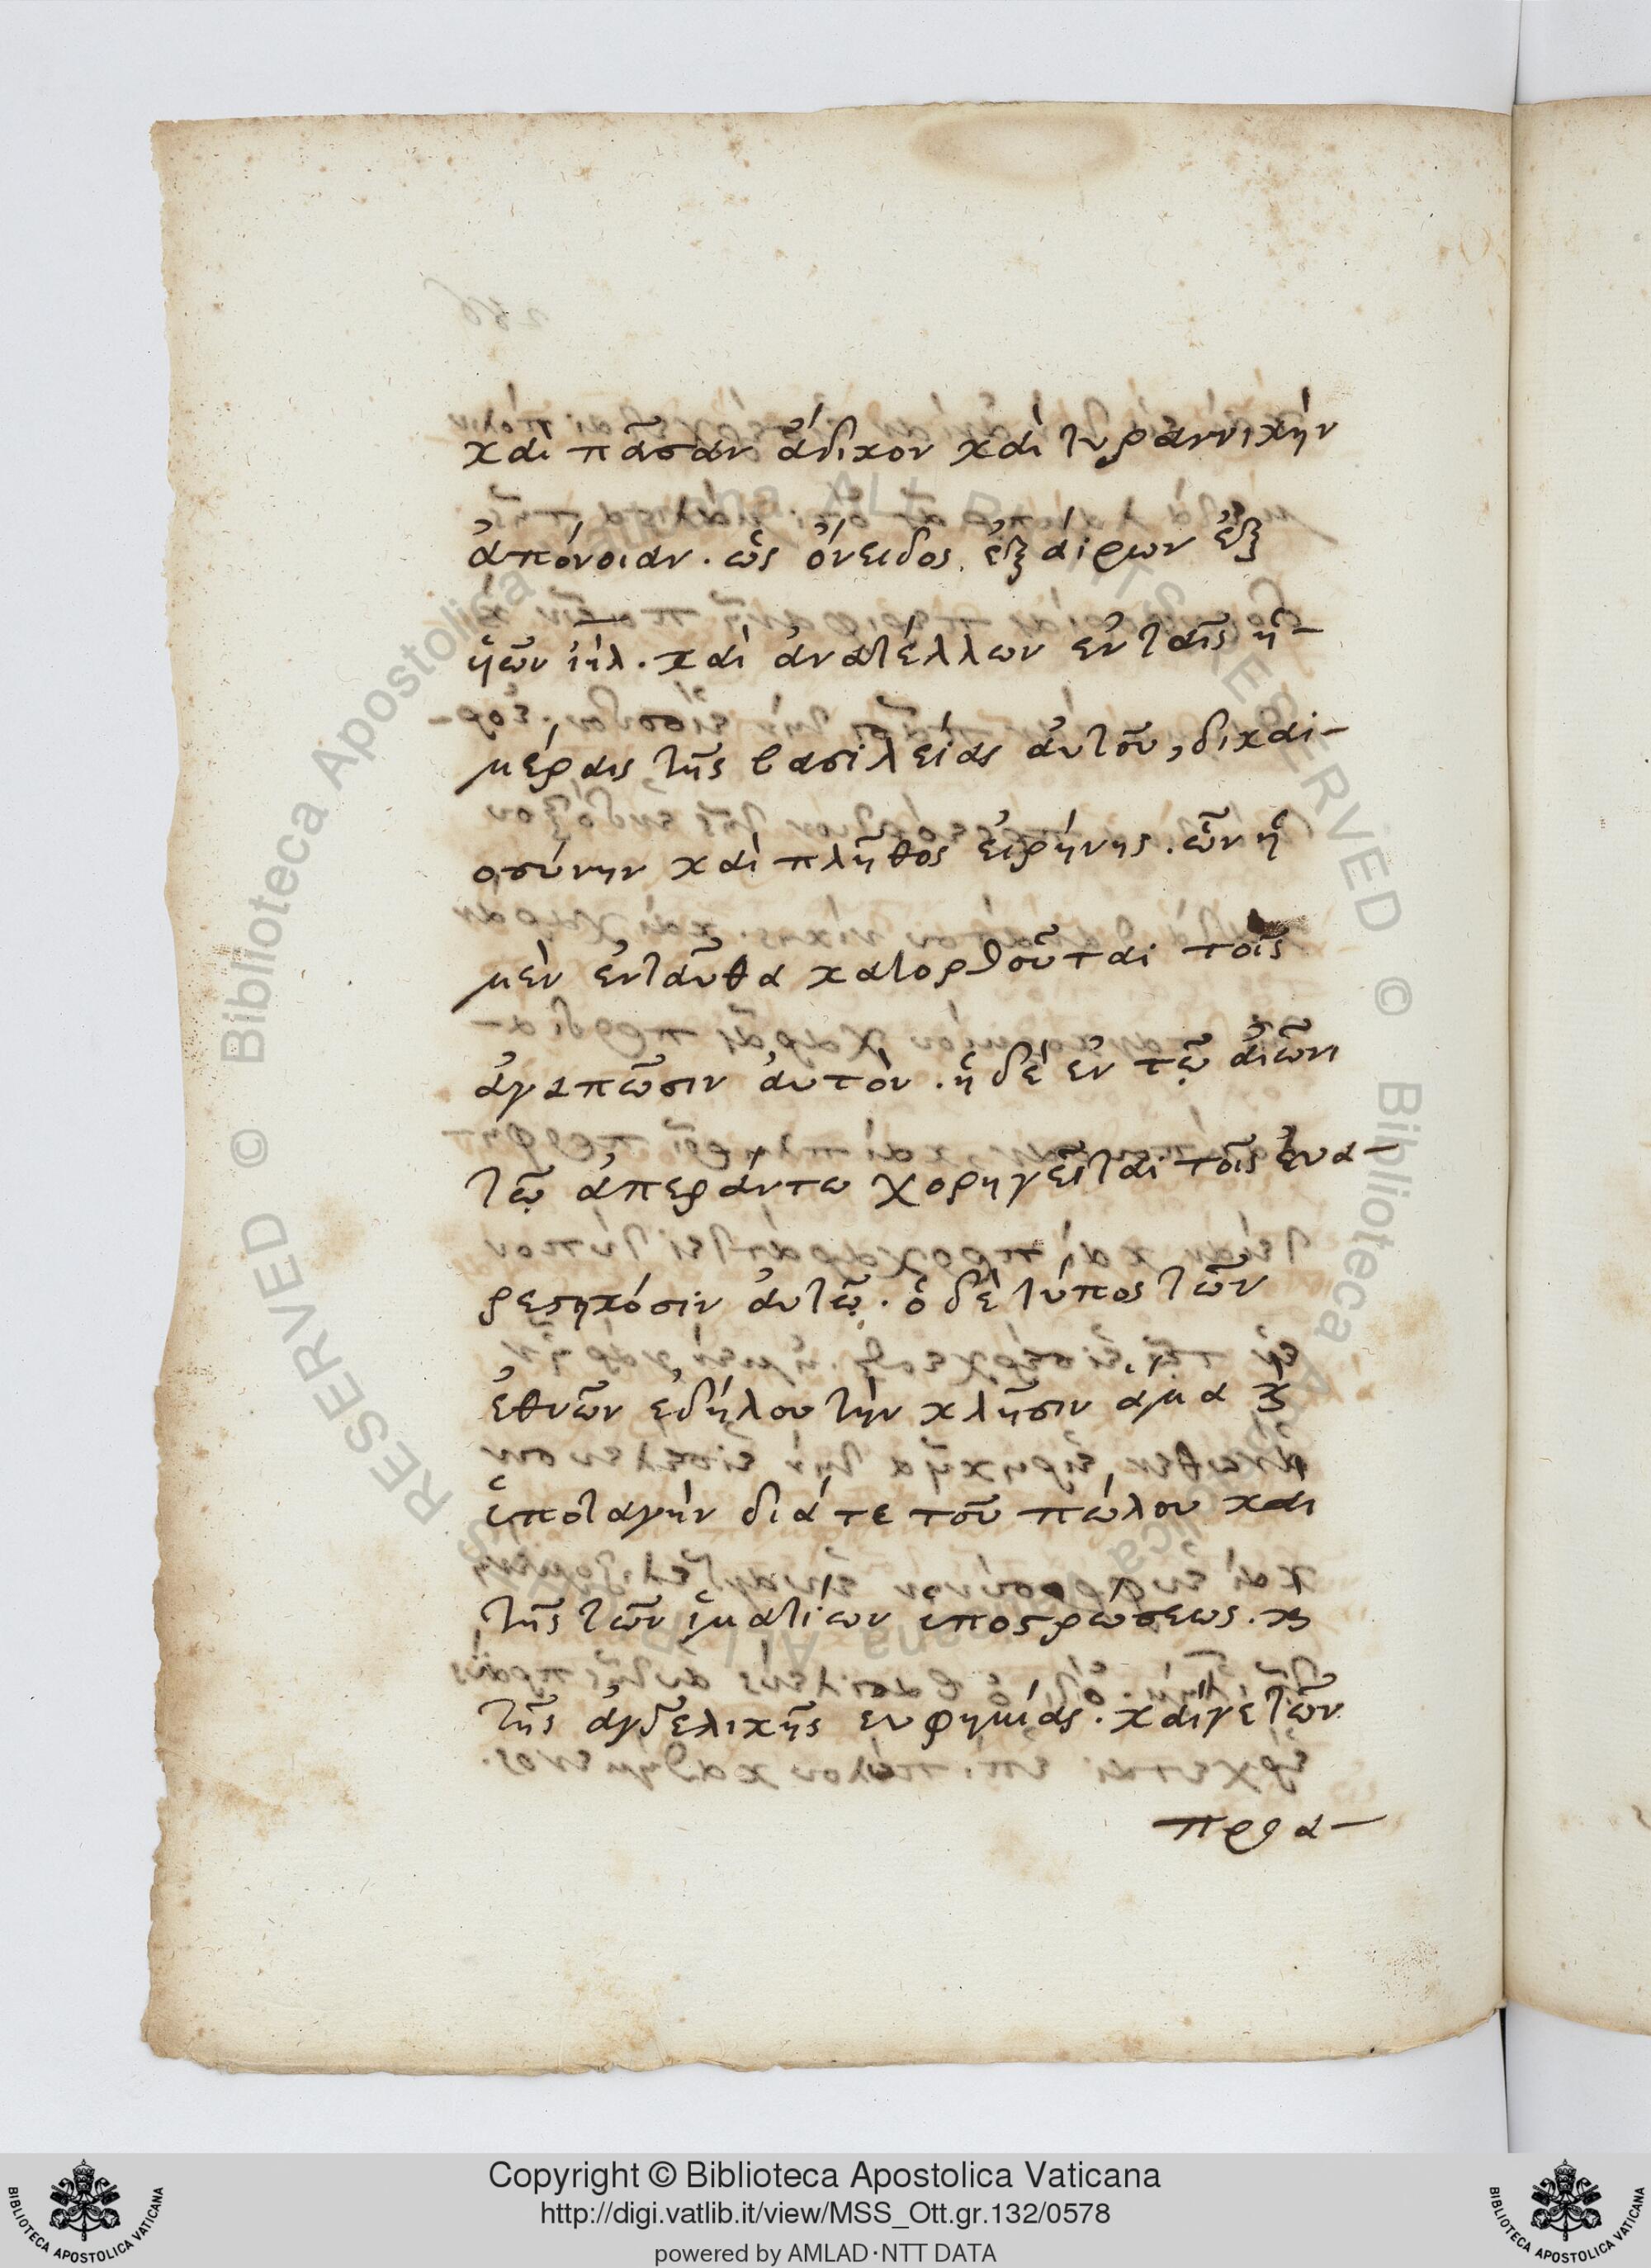 καὶ πᾶσαν ἄδικον καὶ τυραννικὴν
ἀπόνοιαν. ὡς ὄνειδος ἐξαίρων ἐξ
ϊῆλ. καὶ ἀνατέλλων ἐν ταῖς ἡ-
μέραις τῆς βασιλείας αὐτοῦ, δικαι-
οσύνην καὶ πλῆθος εἰρήνης. ὧν ἡ
μὲν ἐνταῦθα κατορθοῦται τοῖς
ἀγαπῶσιν αὐτὸν. ἡ δὲ ἐν τῷ αἰῶνι
τῷ ἀπεράντω χορηγεῖται τοῖς εὐα-
ρεστηκόσιν αὐτῷ. ὁ δὲ τύπος τῶν
ἐθνῶν ἐδήλου τὴν κλῆσιν ἅμα καὶ
ὑποταγὴν διά τε τοῦ πώλου και
τῆς τῶν ἱματίων ὑποστρώσεως. καὶ
τῆς ἀγγελικῆς ευφημίας. καίγε τῶν
πρα-
Copyright © Biblioteca Apostolica Vaticana
http://digi.vatlib.it/view/MSS_Ott.gr.132/0578
powered by AMLAD·NTT DATA
BIBLIOTECA APOSTOLICA VATICANA
BIBLIOTECA APOSTOLICA VATICANA